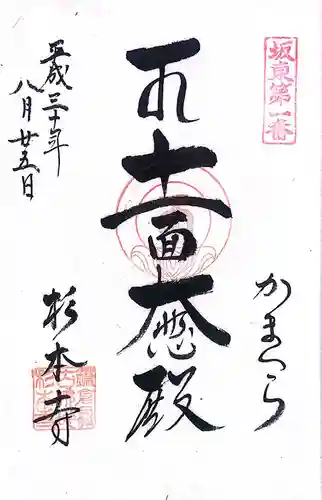 坂東第一番
かまくら
十一面大悲殿
杉本寺
平成三十年
八月廿五日